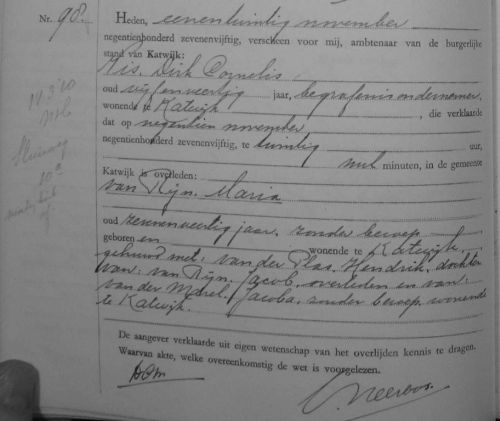 Nr. 98.
Heden, eenentwintig november
negentienhonderd zevenenvijftig, verscheen voor mij, ambtenaar van de burgerlijke
stand van Katwijk:
Dirk Cornelis,
oud vijfenveertig jaar, begrafenisondernemer,
wonende te Katwijk, die verklaarde
dat op negentien november
negentienhonderd zevenenvijftig, te twintig uur,
nul minuten, in de gemeente
Katwijk is overleden:
van Rijn, Maria
oud zevenenveertig jaar, zonder beroep
geboren en wonende te Katwijk,
gehuwd met: van der Plas, Hendrik, dochter
van: van Rijn, Jacob, overleden en van:
van der Marel, Jacoba, zonder beroep, wonende
te Katwijk.
De aangever verklaarde uit eigen wetenschap van het overlijden kennis te dragen.
Waarvan akte, welke overeenkomstig de wet is voorgelezen.